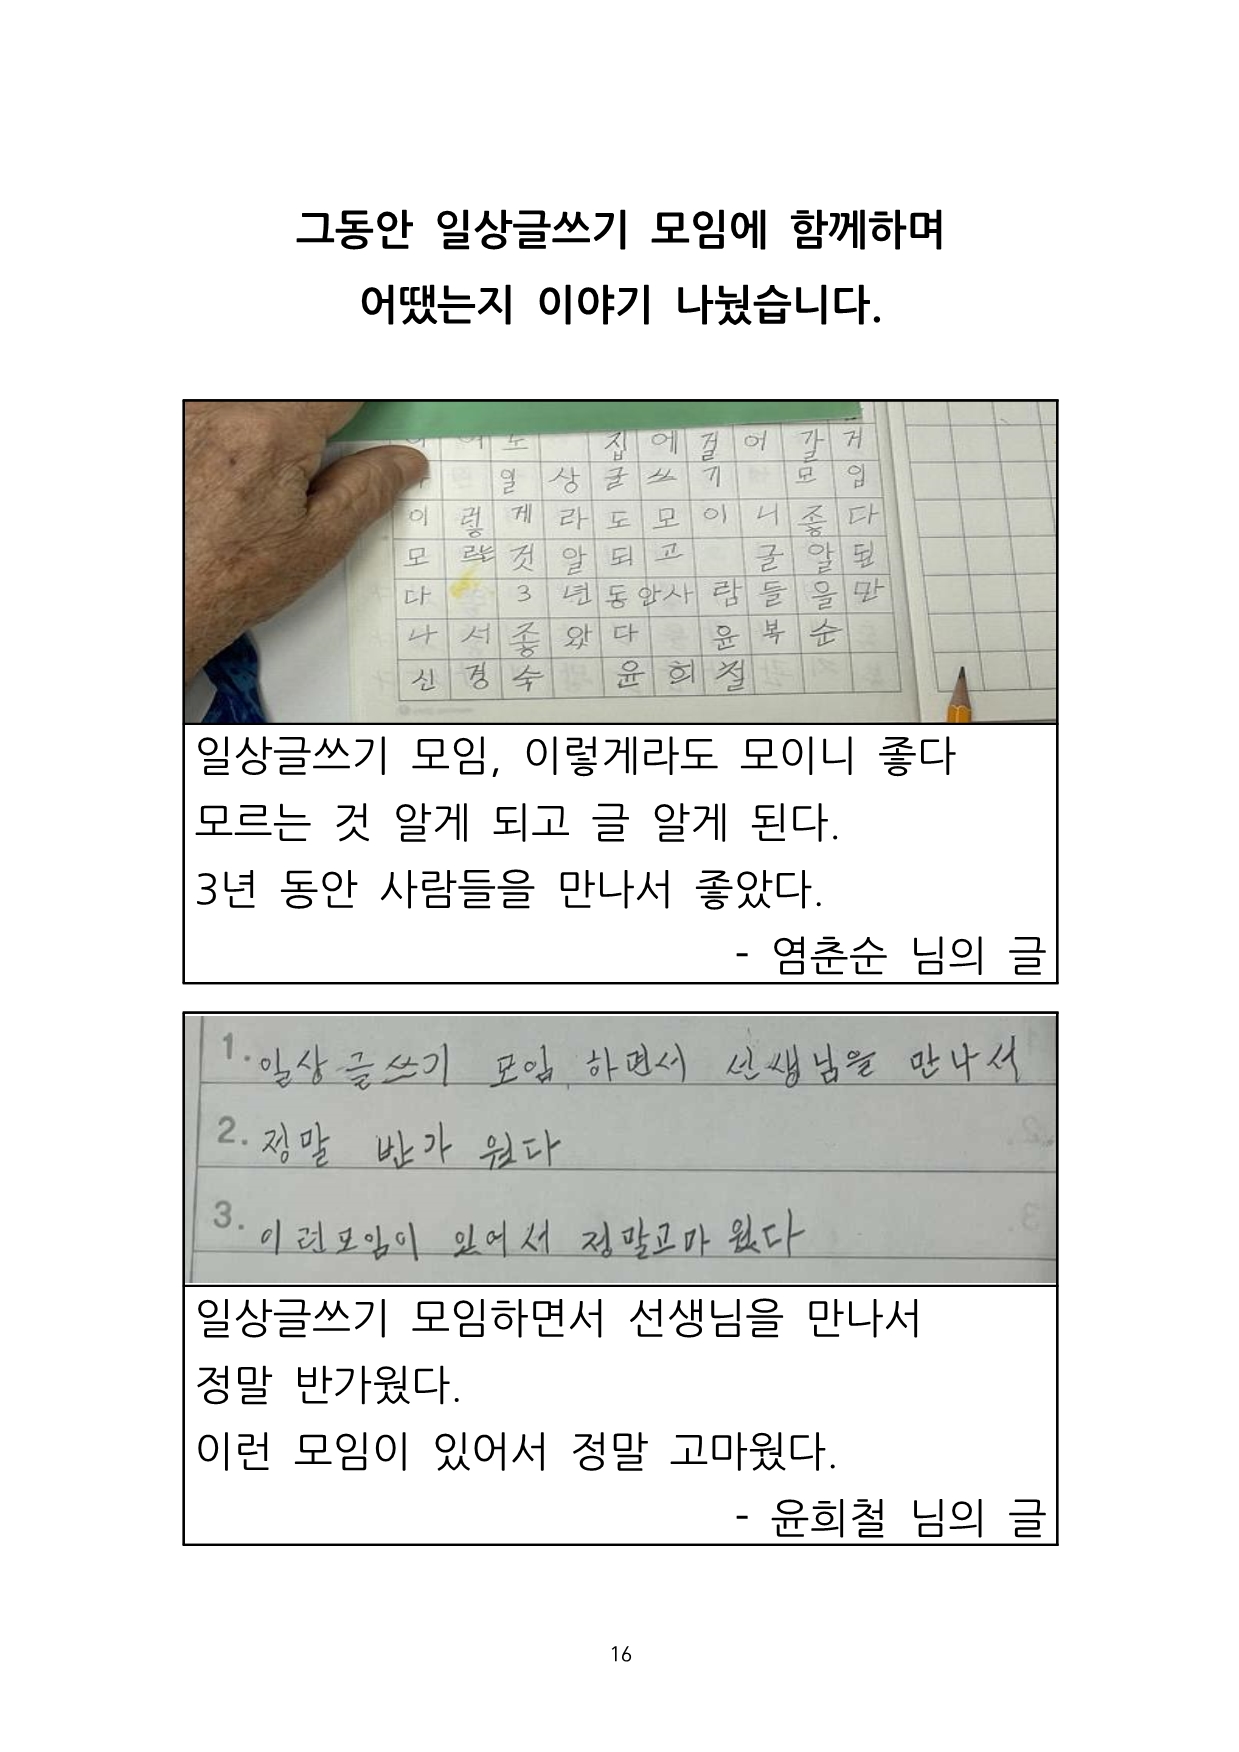 그동안 일상글쓰기 모임에 함께하며
어땠는지 이야기 나눴습니다.
집에 걸어 갈 거
일상글쓰기 모임
이렇게라도모이니좋다
모 것 알되고 글알된
다 3년동안사람들을만
나서좋았다 윤복순
신경숙 윤희철
일상글쓰기 모임, 이렇게라도 모이니 좋다
모르는 것 알게 되고 글 알게 된다.
3년 동안 사람들을 만나서 좋았다.
- 염춘순 님의 글
1. 일상글쓰기 모임 하면서 선생님을 만나서
2. 정말 반가 웠다
3. 이런모임이 있어서 정말고마 웠다
일상글쓰기 모임하면서 선생님을 만나서
정말 반가웠다.
이런 모임이 있어서 정말 고마웠다.
- 윤희철 님의 글
16